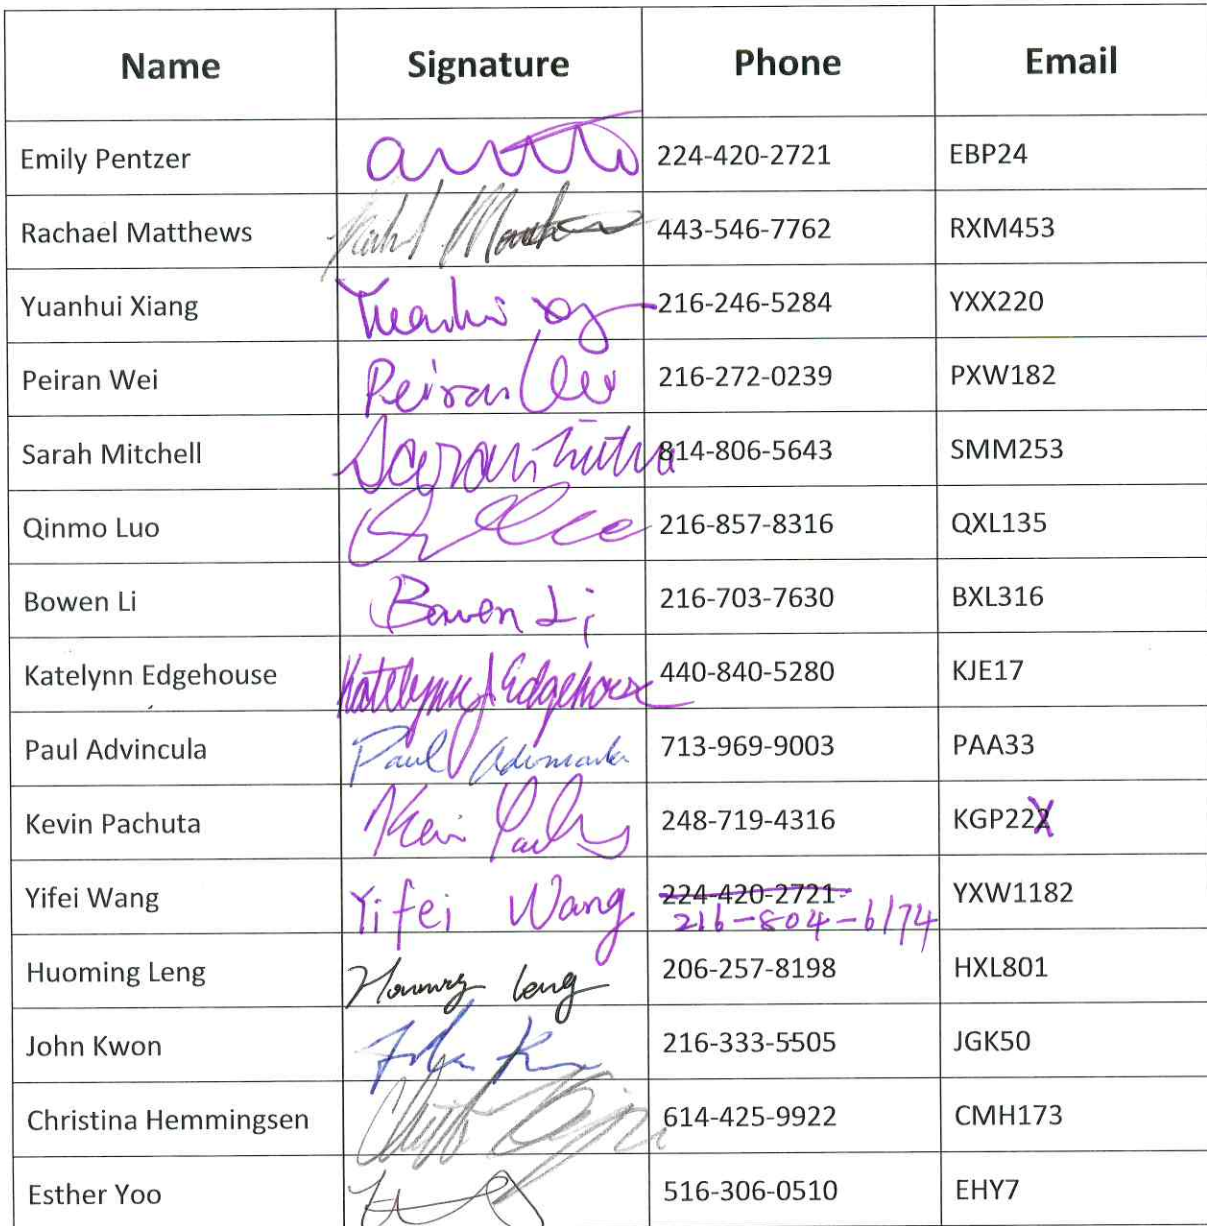 Name Signature Phone Email
Emily Pentzer 224-420-2721 EBP24
Rachael Matthews 443-546-7762 RXM453
Yuanhui Xiang 216-246-5284 YXX220
Peiran Wei Peiran Wei 216-272-0239 PXW182
Sarah Mitchell 814-806-5643 SMM253
Qinmo Luo 216-857-8316 QXL135
Bowen Li Bowen Li 216-703-7630 BXL316
Katelynn Edgehouse Katelynn J Edgehouse 440-840-5280 KJE17
Paul Advincula Paul Advincula 713-969-9003 PAA33
Kevin Pachuta 248-719-4316 KGP222
Yifei Wang Yifei Wang 224-420-2721 YXW1182
216-804-6174
Huoming Leng 206-257-8198 HXL801
John Kwon 216-333-5505 JGK50
Christina Hemmingsen 614-425-9922 CMH173
Esther Yoo 516-306-0510 EHY7